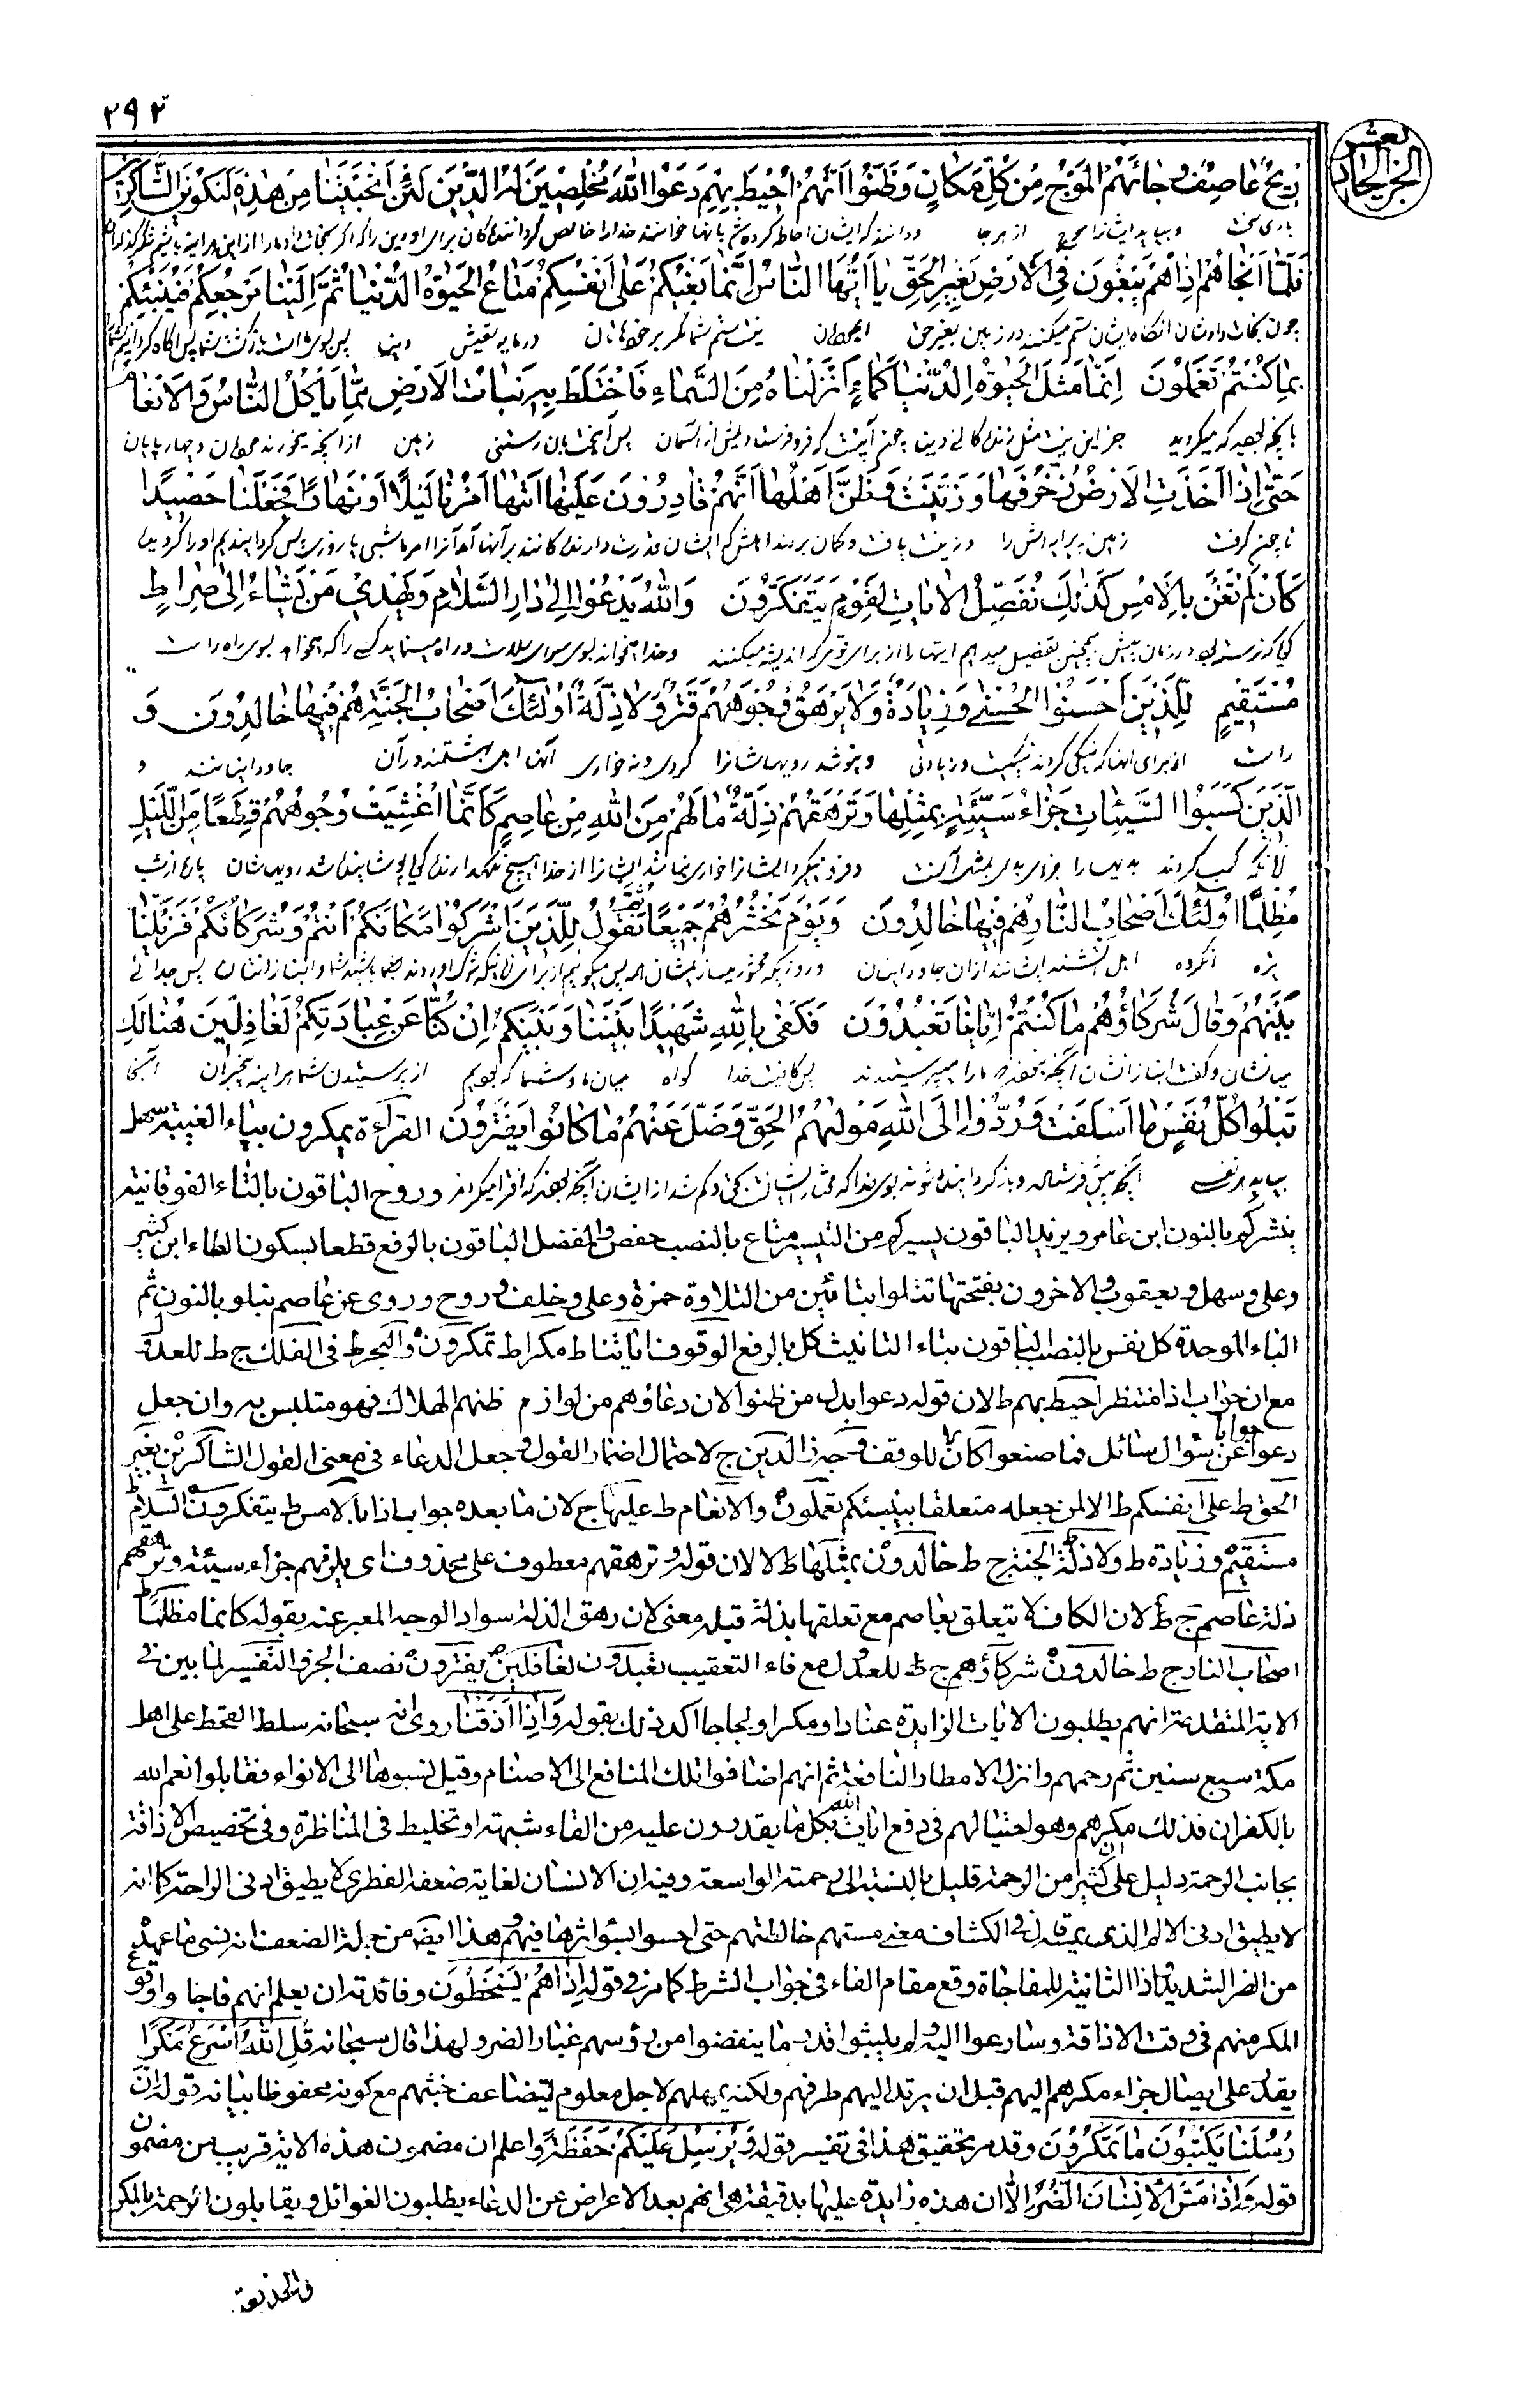 ۲۹۲
الجزء الحادی عشر
رِيحٌ عاصِفٌ وَجائَهُمُ المَوْجُ مِنْ كُلِّ مَكانٍ وَظَنُّوا اَنَّهُمْ اُحِيطَ بِهِمْ دَعَوُا اللهَ مُخْلِصِينَ لَهُ الدِّينَ لَئِنْ اَنْجَيْتَنا مِنْ هٰذِهِ لَنَكُونَنَّ الشّاكِرِينَ
بادی سخت و بیاید ایشانرا موج از هر جا و دانند که ایشان احاطه کرده شد بانها خوانند خدا را خالص کردانندگان برای او دین را که اگر نجات دهی ما را از این هر اینه باشیم
فَلَمّا اَنْجاهُمْ اِذا هُمْ يَبْغُونَ فِى الْاَرْضِ بِغَيْرِ الْحَقِّ يا اَيُّهَا النّاسُ اِنَّما بَغْيُكُمْ عَلى اَنْفُسِكُمْ مَتاعُ الْحَيٰوةِ الدُّنْيا ثُمَّ اِلَيْنا مَرْجِعُكُمْ فَنُنَبِّئُكُمْ
چون نجات دادشان انگاه ایشان ستم میکنند در زمین بغیر حق ای مردمان نیست ستم شما مگر بر خودهاتان در مایه تعیش دنیا پس بسوی ماست بازگشت شما پس آگاه گردانیم شما را
بِما كُنْتُمْ تَعْمَلُونَ اِنَّما مَثَلُ الْحَيٰوةِ الدُّنْيا كَماءٍ اَنْزَلْناهُ مِنَ السَّماءِ فَاخْتَلَطَ بِهِ نَباتُ الْاَرْضِ مِمّا يَأْكُلُ النّاسُ وَالْاَنْعامُ
بانچه بودید که میکردید جز این نیست مثل زندگانی دنیا همچو آبیست که فرو فرستادیمش از آسمان پس آمیخت بان رستنی زمین از انچه میخورند مردمان و چهارپایان
حَتّٰى اِذا اَخَذَتِ الْاَرْضُ زُخْرُفَها وَزَّيَّنَتْ وَظَنَّ اَهْلُها اَنَّهُمْ قادِرُونَ عَلَيْها اَتٰيها اَمْرُنا لَيْلًا اَوْ نَهارًا فَجَعَلْناها حَصِيدًا
تا چون گرفت زمین پیرایه اش را و زینت یافت و گمان بردند اهلش که ایشان قدرت دارندگانند بر آنها آمد آنرا امر ما شبی یا روزی پس گردانیدیم او را
كَاَنْ لَمْ تَغْنَ بِالْاَمْسِ كَذٰلِكَ نُفَصِّلُ الْاٰياتِ لِقَوْمٍ يَتَفَكَّرُونَ وَاللهُ يَدْعُوا اِلٰى دارِ السَّلامِ وَيَهْدِى مَنْ يَشاءُ اِلٰى صِراطٍ
همچنین تفصیل میدهیم ایتها را از برای قومی که اندیشه میکنند و خدا میخواند بسوی سرای سلامت و راه مینماید کسی را که میخواهد بسوی راه راست
مُسْتَقِيمٍ لِلَّذِينَ اَحْسَنُوا الْحُسْنٰى وَزِيادَةٌ وَلا يَرْهَقُ وُجُوهَهُمْ قَتَرٌ وَلا ذِلَّةٌ اُولٰئِكَ اَصْحابُ الْجَنَّةِ هُمْ فِيها خالِدُونَ وَ
راست از برای انها که نیکی کردند نیکیست و زیادتی و نپوشد رویهاشانرا گردی و نه خواری آنها اهل بهشتند در آن جاودانیانند و
الَّذِينَ كَسَبُوا السَّيِّئاتِ جَزاءُ سَيِّئَةٍ بِمِثْلِها وَتَرْهَقُهُمْ ذِلَّةٌ ما لَهُمْ مِنَ اللهِ مِنْ عاصِمٍ كَاَنَّما اُغْشِيَتْ وُجُوهُهُمْ قِطَعًا مِنَ اللَّيْلِ
انانکه کسب کردند بدیها را جزای بدی بمثل آنست و فرو گیرد ایشانرا خواری نباشد ایشانرا از خدا هیچ نگهدارنده گویا پوشانیده شد رویهاشان پارۀ از شب
مُظْلِمًا اُولٰئِكَ اَصْحابُ النّارِ هُمْ فِيها خالِدُونَ وَيَوْمَ نَحْشُرُهُمْ جَمِيعًا ثُمَّ نَقُولُ لِلَّذِينَ اَشْرَكُوا مَكانَكُمْ اَنْتُمْ وَشُرَكاؤُكُمْ فَزَيَّلْنا
تیره انگروه اهل آتشند ایشانند در ان جاودانیان و روزیکه محشور سازیمشان همه پس میگوئیم از برای انانیکه شرک اوردند بجای خود باشید شما و انبازانتان پس جدائی
بَيْنَهُمْ وَقالَ شُرَكاؤُهُمْ ما كُنْتُمْ اِيّانا تَعْبُدُونَ فَكَفٰى بِاللهِ شَهِيدًا بَيْنَنا وَبَيْنَكُمْ اِنْ كُنّا عَنْ عِبادَتِكُمْ لَغافِلِينَ هُنالِكَ
میانشان و گفت انبازانشان که نبودید ما را میپرستیدند پس کافیست خدا گواه میان ما و شما که بودیم از پرستیدن شما هر اینه بیخبران آنجا
تَبْلُوا كُلُّ نَفْسٍ ما اَسْلَفَتْ وَرُدُّوا اِلَى اللهِ مَوْلٰيهُمُ الْحَقِّ وَضَلَّ عَنْهُمْ ما كانُوا يَفْتَرُونَ القراءة يمكرون بياء الغيبة سهل
بیابد هر نفسی آنچه پیش فرستاده و بازگردانیده شوند بسوی خدا که مختار ایشانست بحق و گم شد از ایشان آنچه بودند که افترا میکردند وروح الباقون بالتاء الفوقانية
ينشركم بالنون ابن عامر ويزيد الباقون يسيركم من التسيير متاع بالنصب حفص والمفضل الباقون بالرفع قطعا بسكون الطاء ابن كثير
وعلى وسهل ويعقوب والاخرون بفتحتها تتلوا بتائين من التلاوة حمزة وعلى وخلف وروح وروى عن عاصم نبلو بالنون ثم
الباء الموحدة كل نفس بالنصب الباقون بتاء التانيث كل بالرفع الوقوف اياتنا ط مكرا ط تمكرون ه والبحر ط فى الفلك ج ط للعدل
مع ان جواب اذا منتظر احيط بهم ط لان قوله دعوا بدل من ظنوا لان دعاؤهم من لوازم ظنهم الهلاك فهو متلبس به وان جعل
دعوا جوابا عن سؤال سائل فما صنعوا كان للوقف وجه الدين ج لاحتمال اضمار القول وجعل الدعاء فى معنى القول الشاكرين ه بغير
الحق ط على انفسكم ط الا لمن جعله متعلقا ببغيكم تعملون ه والانعام ط عليها ج لان ما بعده جواب اذا بالامس ط يتفكرون ه السلام ط
مستقيم ه وزيادة ط ولا ذلة ط الجنة ج ط خالدون ه بمثلها ط لا لان قوله وترهقهم معطوف على محذوف اى يلزمهم جزاء سيئة وترهقهم
ذلة ط عاصم ج ط لان الكاف لا يتعلق بعاصم مع تعلقها بذلة قبله معنى لان رهق الذلة سواد الوجه المعبر عنه بقوله كانما مظلما ط
اصحاب النار ج ط خالدون ه شركاؤهم ج ط للعدل مع فاء التعقيب تعبدون ه لغافلين ه يفترون ه نصف الجزء التفسير لما بين فى
الاية المتقدمة انهم يطلبون الايات الزايدة عنادا ومكرا ولجاجا اكد ذلك بقوله وَاِذا اَذَقْنا روى انه سبحانه سلط القحط على اهل
مكة سبع سنين ثم رحمهم وانزل الامطار النافعة ثم انهم اضافوا تلك المنافع الى الاصنام وقيل نسبوها الى الانواء فقابلوا نعم الله
بالكفران فذلك مكرهم وهو احتيالهم فى دفع ايات الله بكل ما يقدرون عليه من القاء شبهة او تخليط فى المناظرة وفى تخصيص الاذاقة
بجانب الرحمة دليل على ان كثيرا من الرحمة قليل بالنسبة الى رحمته الواسعة وفيه ان الانسان لغاية ضعفه الفطرى لا يطيق ادنى الراحة كما انه
لا يطيق ادنى الالم الذى يمسه قال فى الكشاف معنى مستهم خالطتهم حتى احسوا بسوء اثرها فيهم وهذا ايضا من جملة الضعف انه نسى ما عهده
من الضر الشديد واذا الثانية للمفاجاة وقع مقام الفاء فى جواب الشرط كما مر فى قوله اِذا هُمْ يَسْخَطُونَ وفائدته ان يعلم انهم فاجاوا وقوع
المكر منهم فى وقت الاذاقة وسارعوا اليه ولم يلبثوا قدر ما ينفضوا من رؤسهم غبار الضر ولهذا قال سبحانه قُلِ اللهُ اَسْرَعُ مَكْرًا
يقدر على ايصال جزاء مكرهم اليهم قبل ان يرتد اليهم طرفهم ولكنه يمهلهم لاجل معلوم ليتضاعف خبثهم مع كونه محفوظا بيانه قوله اِنَّ
رُسُلَنا يَكْتُبُونَ ما تَمْكُرُونَ وقد مر تحقيق هذا فى تفسير قوله وَيُرْسِلُ عَلَيْكُمْ حَفَظَةً واعلم ان مضمون هذه الاية قريب من مضمون
قوله وَاِذا مَسَّ الْاِنْسانَ الضُّرُّ الا ان هذه زايدة عليها بدقيقة هى انهم بعد الاعراض عن الدعاء يطلبون الغوائل ويقابلون الرحمة بالمكر